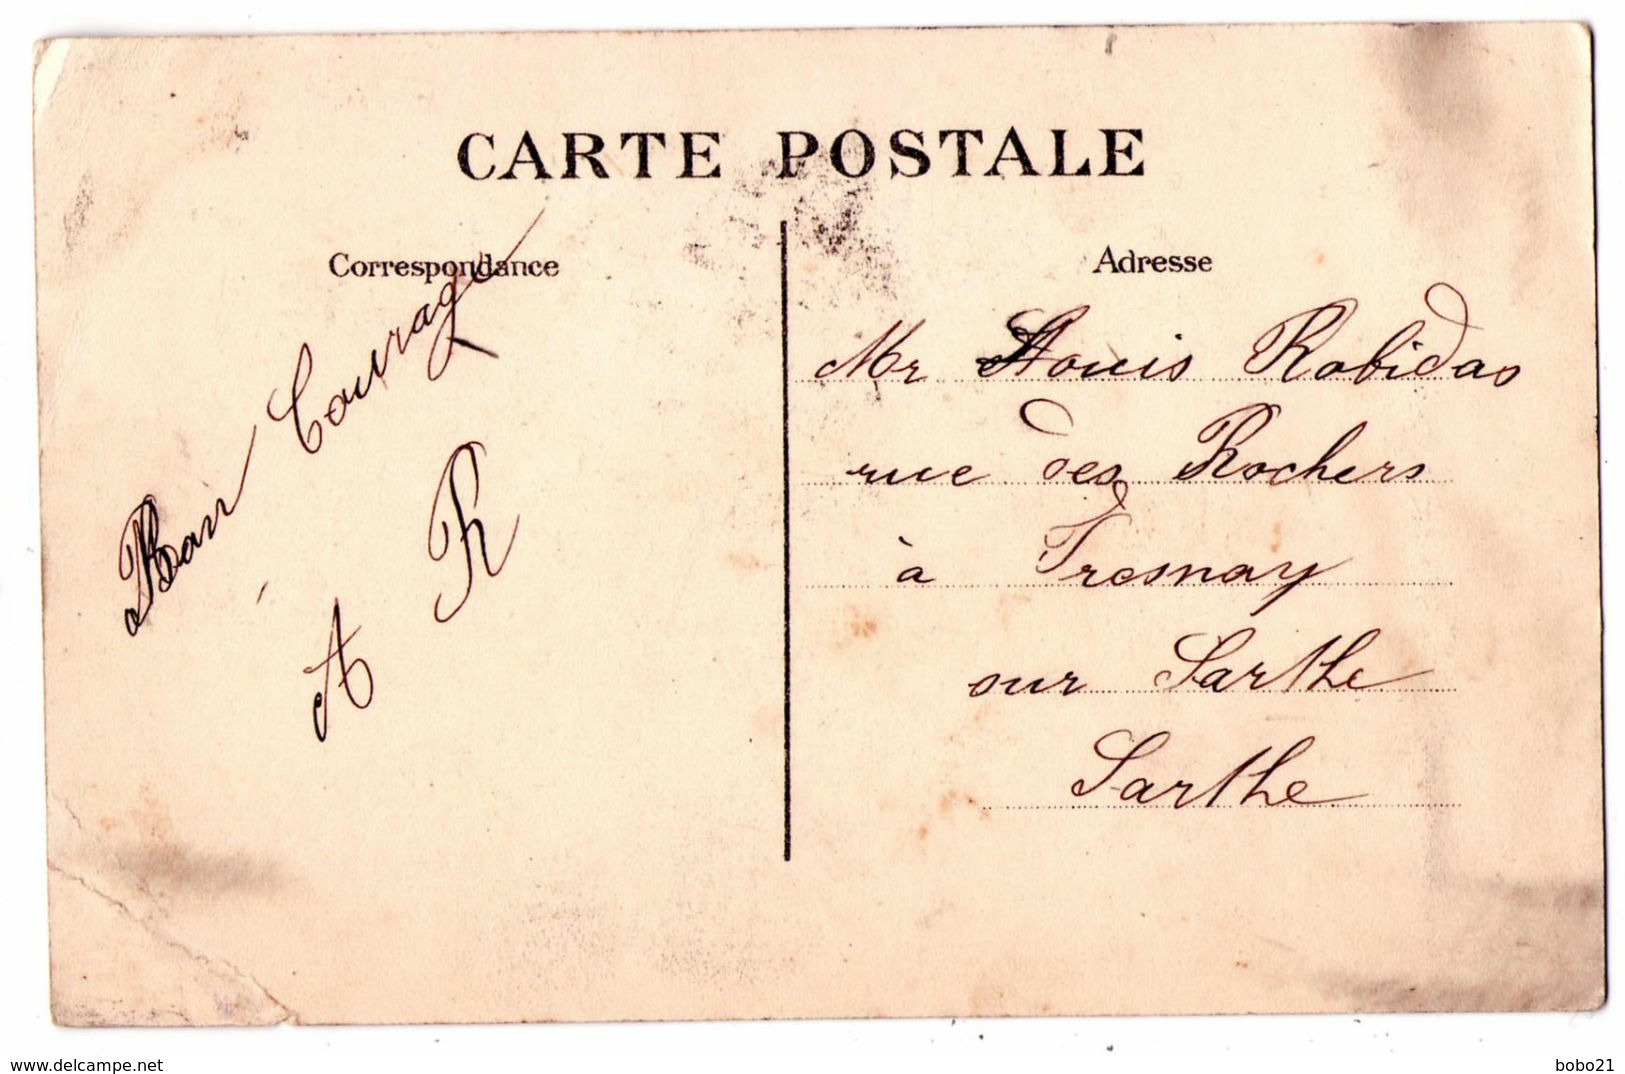 CARTE POSTALE
Correspondance
Bon Courage
A R
Adresse
Mr Louis Robidas
rue des Rochers
à Fresnay
sur Sarthe
Sarthe
www.delcampe.net
bobo21